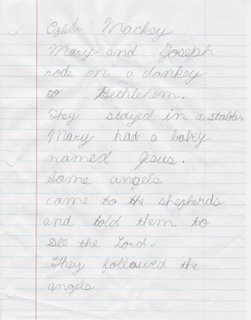 Caleb Mackey
Mary and Joseph
rode on a dankey
to Bethlehem.
They stayed in a stable.
Mary had a babey
named Jesus.
Some angels
came to the shepherds
and told them to
see the Lord.
They followed the
angels